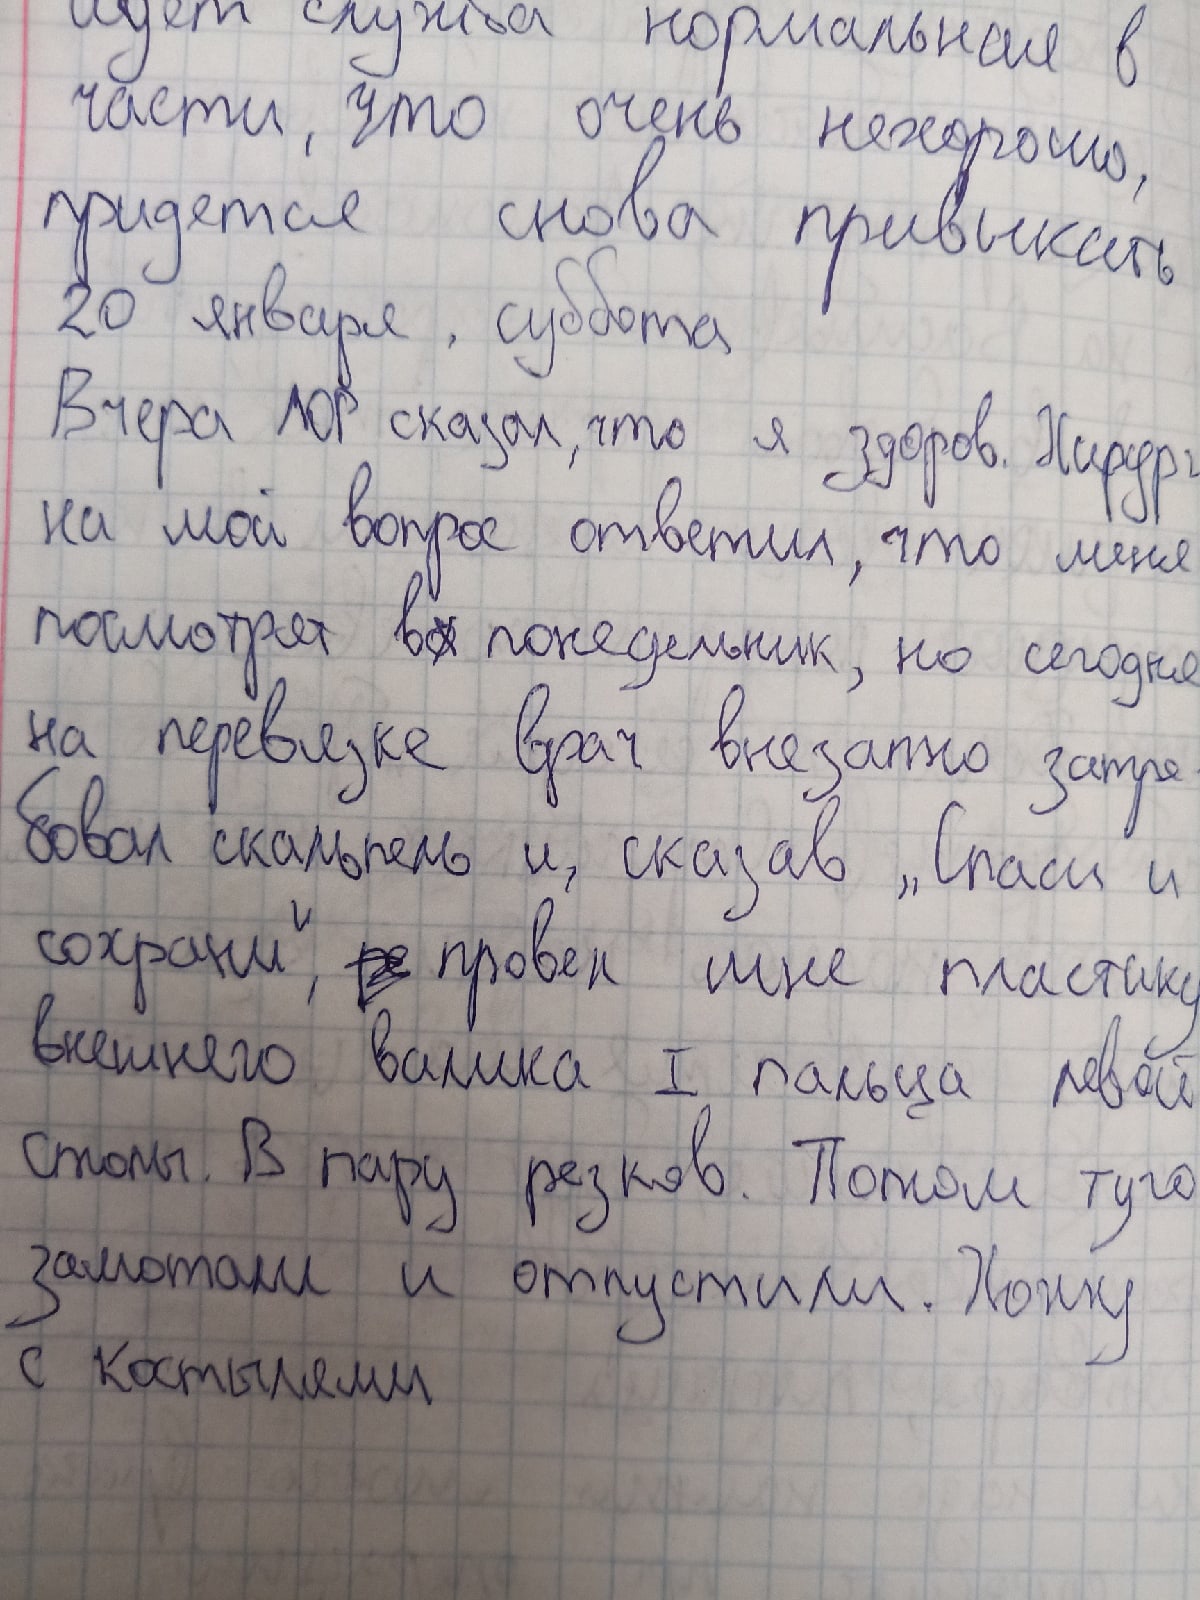 идет служба нормальная в
части, что очень нехорошо,
придется снова привыкать
20 января, суббота
Вчера ЛОР сказал, что я здоров. Хирург
на мой вопрос ответил, что меня
посмотрят в понедельник, но сегодня
на перевязке врач внезапно затре-
бовал скальпель и, сказав „Спаси и
сохрани", провел мне пластику
внешнего валика I пальца левой
стопы. В пару резков. Потом туго
замотали и отпустили. Хожу
с костылями